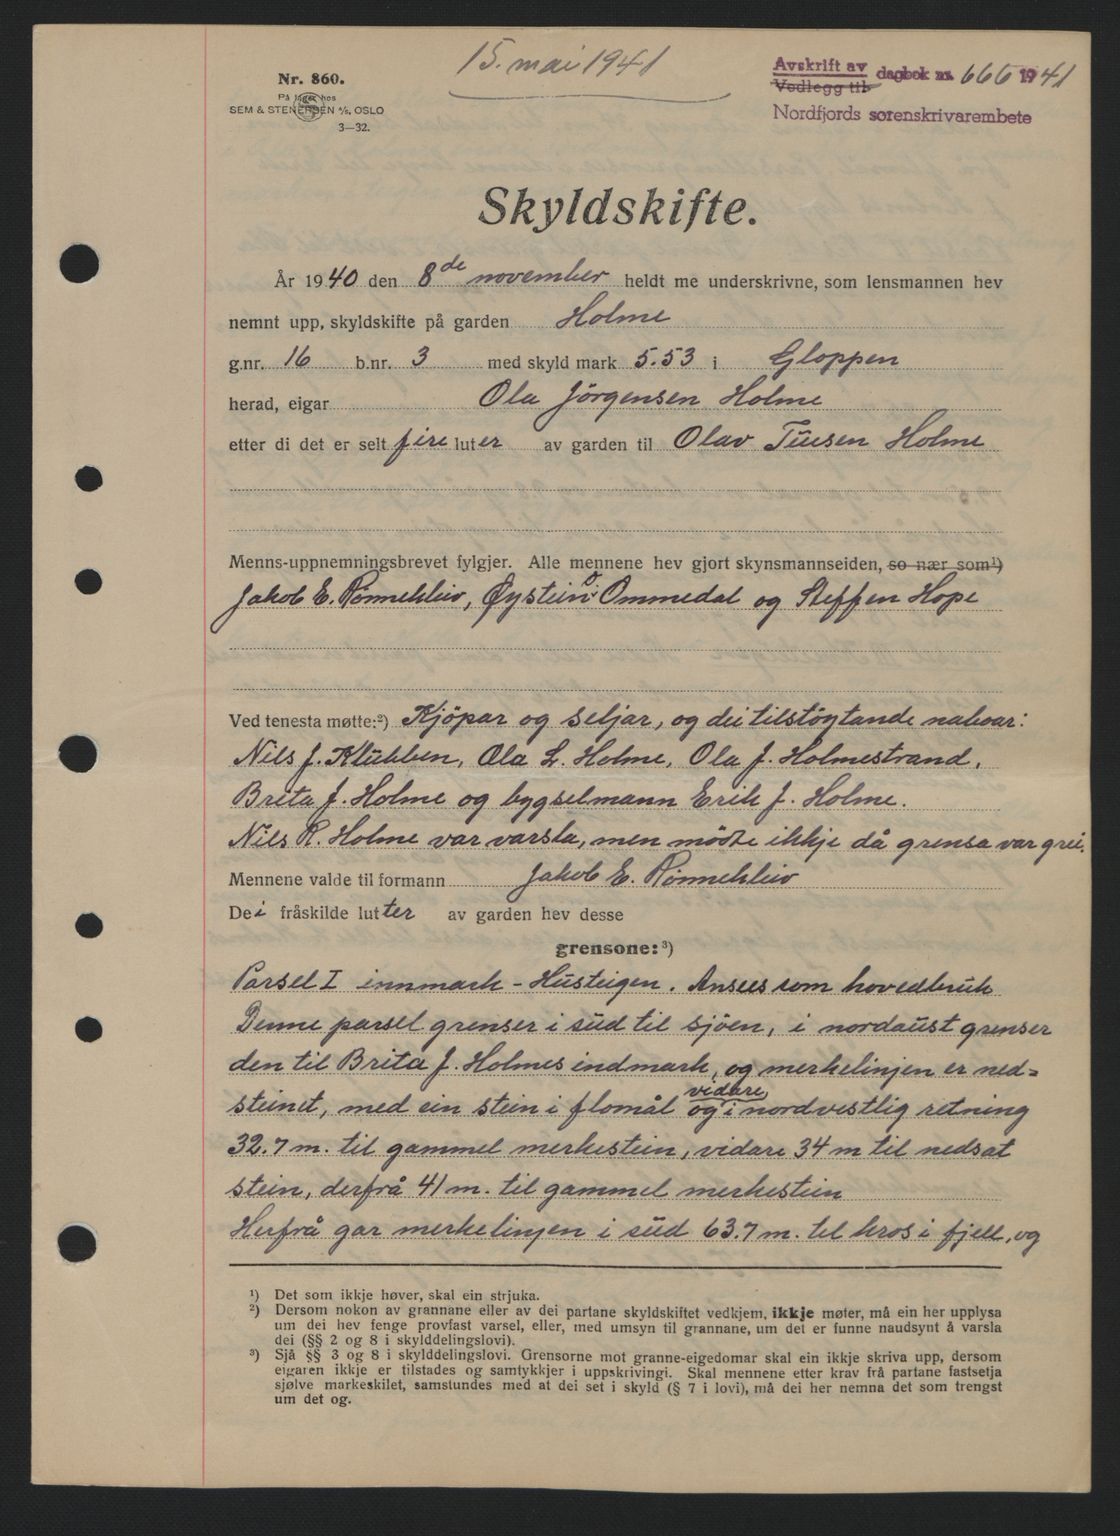 15. mai 1941
Nr. 860.
På lager hos
SEM & STENERSEN A/S, OSLO
3—32.
Avskrift av
Vedlegg til dagbok nr. 666 1941
Nordfjords sorenskrivarembete
Skyldskifte.
År 1940 den 8de november heldt me underskrivne, som lensmannen hev
nemnt upp, skyldskifte på garden Holme
g.nr. 16 b.nr. 3 med skyld mark 5.53 i Gloppen
herad, eigar Ola Jörgensen Holme
etter di det er selt fire luter av garden til Olav Tüesen Holme
Menns-uppnemningsbrevet fylgjer. Alle mennene hev gjort skynsmannseiden, so nær som¹)
Jakob E. Rønnekleiv, Øystein O. Ommedal og Steffen Hope
Ved tenesta møtte:²) Kjöpar og seljar, og dei tilstöytande naboar:
Nils J. Klübben, Ola L. Holme, Ola J. Holmestrand,
Brita J. Holme og bygselmann Erik J. Holme.
Nils R. Holme var varsla, men mödte ikkje då grensa var grei.
Mennene valde til formann Jakob E. Rønnekleiv
Dei fråskilde lutter av garden hev desse
grensone:³)
Parsel I innmark - Hüsteigen. Ansees som hovedbruk
Denne parsel grenser i süd til sjöen, i nordaust grenser
den til Brita J. Holmes indmark, og merkelinjen er ned=
steinet, med ein stein i flomål og vidare i nordvestlig retning
32.7 m. til gammel merkestein, vidare 34 m til nedsat
stein, derfrå 41 m. til gammel merkestein
Herfrå gar merkelinjen i süd 63.7 m. til kros i fjell, og
¹) Det som ikkje høver, skal ein strjuka.
²) Dersom nokon av grannane eller av dei partane skyldskiftet vedkjem, ikkje møter, må ein her upplysa
um dei hev fenge provfast varsel, eller, med umsyn til grannane, um det er funne naudsynt å varsla
dei (§§ 2 og 8 i skylddelingslovi).
³) Sjå §§ 3 og 8 i skylddelingslovi. Grensorne mot granne-eigedomar skal ein ikkje skriva upp, dersom
eigaren ikkje er tilstades og samtykkjer i uppskrivingi. Skal mennene etter krav frå partane fastsetja
sjølve markeskilet, samstundes med at dei set i skyld (§ 7 i lovi), må dei her nemna det som trengst
um det og.